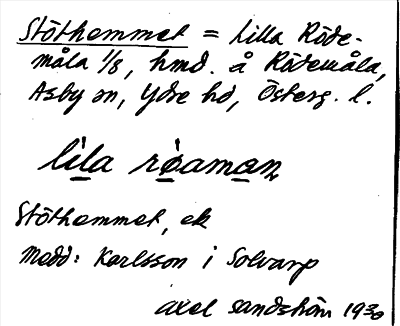 Stöthemmet = Lilla Röde-
måla 1/8, hmd. å Rödemåla,
Asby sn, Ydre hd, Österg. l.
li̱la rø̱ama̱n
Stöthemmet, ek
Medd: Karlsson i Solvarp
Axel Sandström 1930